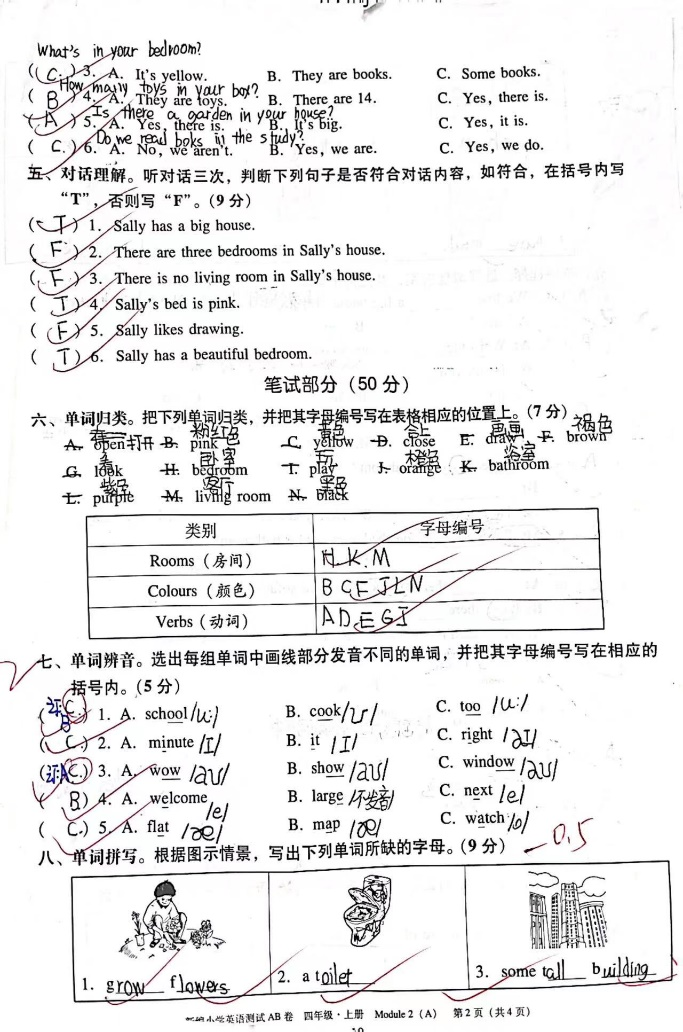 What's in your bedroom?
( C. ) 3. A. It's yellow. B. They are books. C. Some books.
How many toys in your box?
( B ) 4. A. They are toys. B. There are 14. C. Yes, there is.
Is there a garden in your house?
( A ) 5. A. Yes, there is. B. It's big. C. Yes, it is.
Do we read boks in the study?
( C. ) 6. A. No, we aren't. B. Yes, we are. C. Yes, we do.
五、对话理解。听对话三次，判断下列句子是否符合对话内容，如符合，在括号内写
“T”，否则写“F”。(9 分)
( T ) 1. Sally has a big house.
( F ) 2. There are three bedrooms in Sally's house.
( F ) 3. There is no living room in Sally's house.
( T ) 4. Sally's bed is pink.
( F ) 5. Sally likes drawing.
( T ) 6. Sally has a beautiful bedroom.
笔试部分 (50 分)
六、单词归类。把下列单词归类，并把其字母编号写在表格相应的位置上。(7 分)
粉红色 黄色 合上 画画 褐色
A. open 打开 B. pink C. yellow D. close E. draw F. brown
看 卧室 玩 橙色 浴室
G. look H. bedroom I. play J. orange K. bathroom
紫色 客厅 黑色
L. purple M. living room N. black
类别 字母编号
Rooms (房间) H.K.M
Colours (颜色) B C F J L N
Verbs (动词) A D E G I
七、单词辨音。选出每组单词中画线部分发音不同的单词，并把其字母编号写在相应的
括号内。(5 分)
( 订: C. B ) 1. A. school /u:/ B. cook /ʊ/ C. too /u:/
( C. ) 2. A. minute /I/ B. it /I/ C. right /aI/
( 订: A C. ) 3. A. wow /aʊ/ B. show /əʊ/ C. window /əʊ/
( B ) 4. A. welcome /e/ B. large /不发音/ C. next /e/
( C. ) 5. A. flat /æ/ B. map /æ/ C. watch /ɒ/
八、单词拼写。根据图示情景，写出下列单词所缺的字母。(9 分) -0.5
1. grow flowers 2. a toilet 3. some tall building
新编小学英语测试AB卷 四年级·上册 Module 2 (A) 第 2 页 (共 4 页)